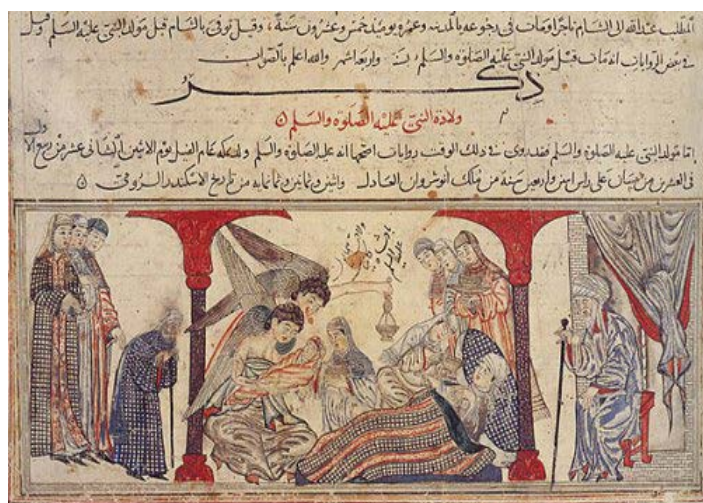 المطلب عبد الله الى الشام تاجرا ومات فى رجوعه بالمدينه وعمره يومئذ خمس وعشرون سنة وقيل توفى بالشام قبل مولد النبى عليه السلم وقيل
فى بعض الروايات انه مات قبل مولد النبى عليه الصلوة والسلم بسنة واربعة اشهر والله اعلم بالصواب
ذكر
ولادة النبى عليه الصلوة والسلم
اما مولد النبى عليه الصلوة والسلم فقد روى فى ذلك الوقت روايات اصحها انه عليه الصلوة والسلم ولد بمكه عام الفيل يوم الاثنين الثانى عشر من ربيع الاول
فى العشرين من نيسان على راس اثنين واربعين سنة من ملك انوشروان العادل واثنين وثمانين وثمانمايه من تاريخ الاسكندر الرومى